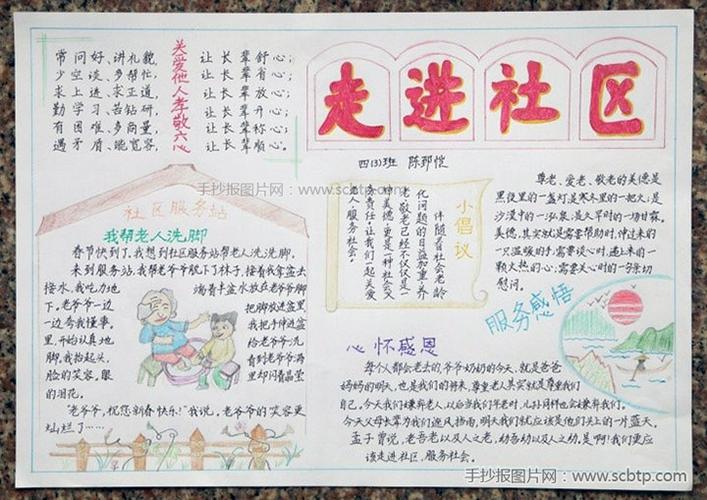 走进社区
四(3)班 陈郑恺
关爱他人孝敬六心
常问好、讲礼貌, 让长辈舒心;
少空谈、多帮忙, 让长辈省心;
求上进、求正道, 让长辈放心;
勤学习、苦钻研, 让长辈开心;
有困难、多商量, 让长辈称心;
遇矛盾、晓宽容, 让长辈顺心。
手抄报图片网:www.scbtp.com
社区服务站
我帮老人洗脚
春节快到了,我想到社区服务站帮老人洗洗脚。
来到服务站,我帮老爷爷脱下了袜子,接着我拿盆去
接水,我吃力地端着半盆水放在老爷爷脚
下。老爷爷一边把脚放进盆里,
一边夸我懂事。我把手伸进盆
里,开始认真地给老爷爷洗
脚。我抬起头,看到老爷爷满
脸的笑容,眼里却闪着晶莹
的泪花。
“老爷爷,祝您新春快乐!”我说。老爷爷的笑容更
灿烂了……
小倡议
伴随着社会老龄
化问题的日益加重,养
老敬老已经不仅仅是一
种美德,更是一种社会义
务责任。让我们一起关爱
老人、服务社会。
尊老、爱老、敬老的美德是
黑夜里的一盏灯,是寒冬里的一把火;是
沙漠中的一泓泉,是久旱时的一场甘霖。
美德,其实就是需要帮助时,伸过来的
一只温暖的手;需要谈心时,递上来的一
颗火热的心;需要关心时的一句亲切
慰问。
服务感悟
心怀感恩
每个人都会老去的,爷爷奶奶的今天,就是爸爸
妈妈的明天,也是我们的将来,尊重老人其实就是尊重我们
自己。今天我们嫌弃老人,以后当我们年老时,儿孙同样也会嫌弃我们。
今天父母长辈为我们遮风挡雨,明天我们就应该是他们头上的一片蓝天。
孟子曾说,老吾老以及人之老,幼吾幼以及人之幼,是啊!我们更应
该走进社区,服务社会。
手抄报图片网:www.scbtp.com